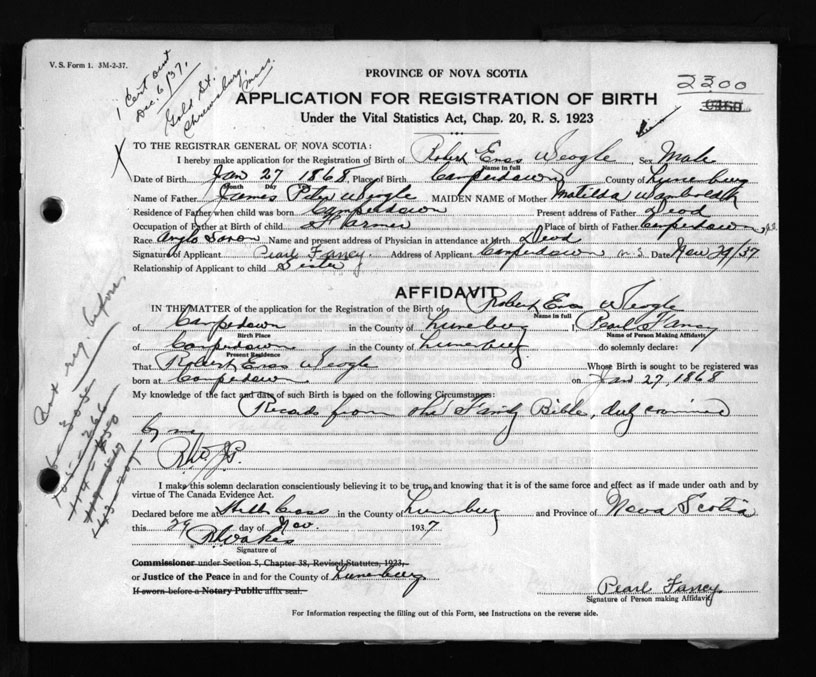 V. S. Form 1. 3M-2-37.
1 Cert out
Dec. 6/37.
Gold St.
Shrewsbury, Mass.
PROVINCE OF NOVA SCOTIA
2300
APPLICATION FOR REGISTRATION OF BIRTH
Under the Vital Statistics Act, Chap. 20, R. S. 1923
X TO THE REGISTRAR GENERAL OF NOVA SCOTIA:
I hereby make application for the Registration of Birth of Robert Enos Weagle Sex Male
Name in full
Date of Birth Jan 27 1868 Place of Birth Camperdown County of Lunenburg
Month Day
Name of Father James Peter Weagle MAIDEN NAME of Mother Matilda
Residence of Father when child was born Camperdown Present address of Father Dead
Occupation of Father at Birth of child Farmer Place of birth of Father Camperdown N.S.
Race Anglo Saxon Name and present address of Physician in attendance at birth Dead
Signature of Applicant Pearl Fancy. Address of Applicant Camperdown N.S. Date Nov 29/37
Relationship of Applicant to child Sister
AFFIDAVIT
IN THE MATTER of the application for the Registration of the Birth of Robert Enos Weagle
Name in full
of Camperdown in the County of Lunenburg I Pearl Fancy
Birth Place Name of Person Making Affidavit
of Camperdown in the County of Lunenburg do solemnly declare:
Present Residence
That Robert Enos Weagle Whose Birth is sought to be registered was
born at Camperdown on Jan 27, 1868
My knowledge of the fact and date of such Birth is based on the following Circumstances:
Records from the Family Bible, duly examined
by me
J.P.
I make this solemn declaration conscientiously believing it to be true, and knowing that it is of the same force and effect as if made under oath and by
virtue of The Canada Evidence Act.
Declared before me at in the County of Lunenburg and Province of Nova Scotia
this 29 day of Nov. 1937
Signature of
Commissioner under Section 5, Chapter 38, Revised Statutes, 1923,
or Justice of the Peace in and for the County of Lunenburg
If sworn before a Notary Public affix seal.
Pearl Fancy.
Signature of Person making Affidavit
For Information respecting the filling out of this Form, see Instructions on the reverse side.
not reg. before